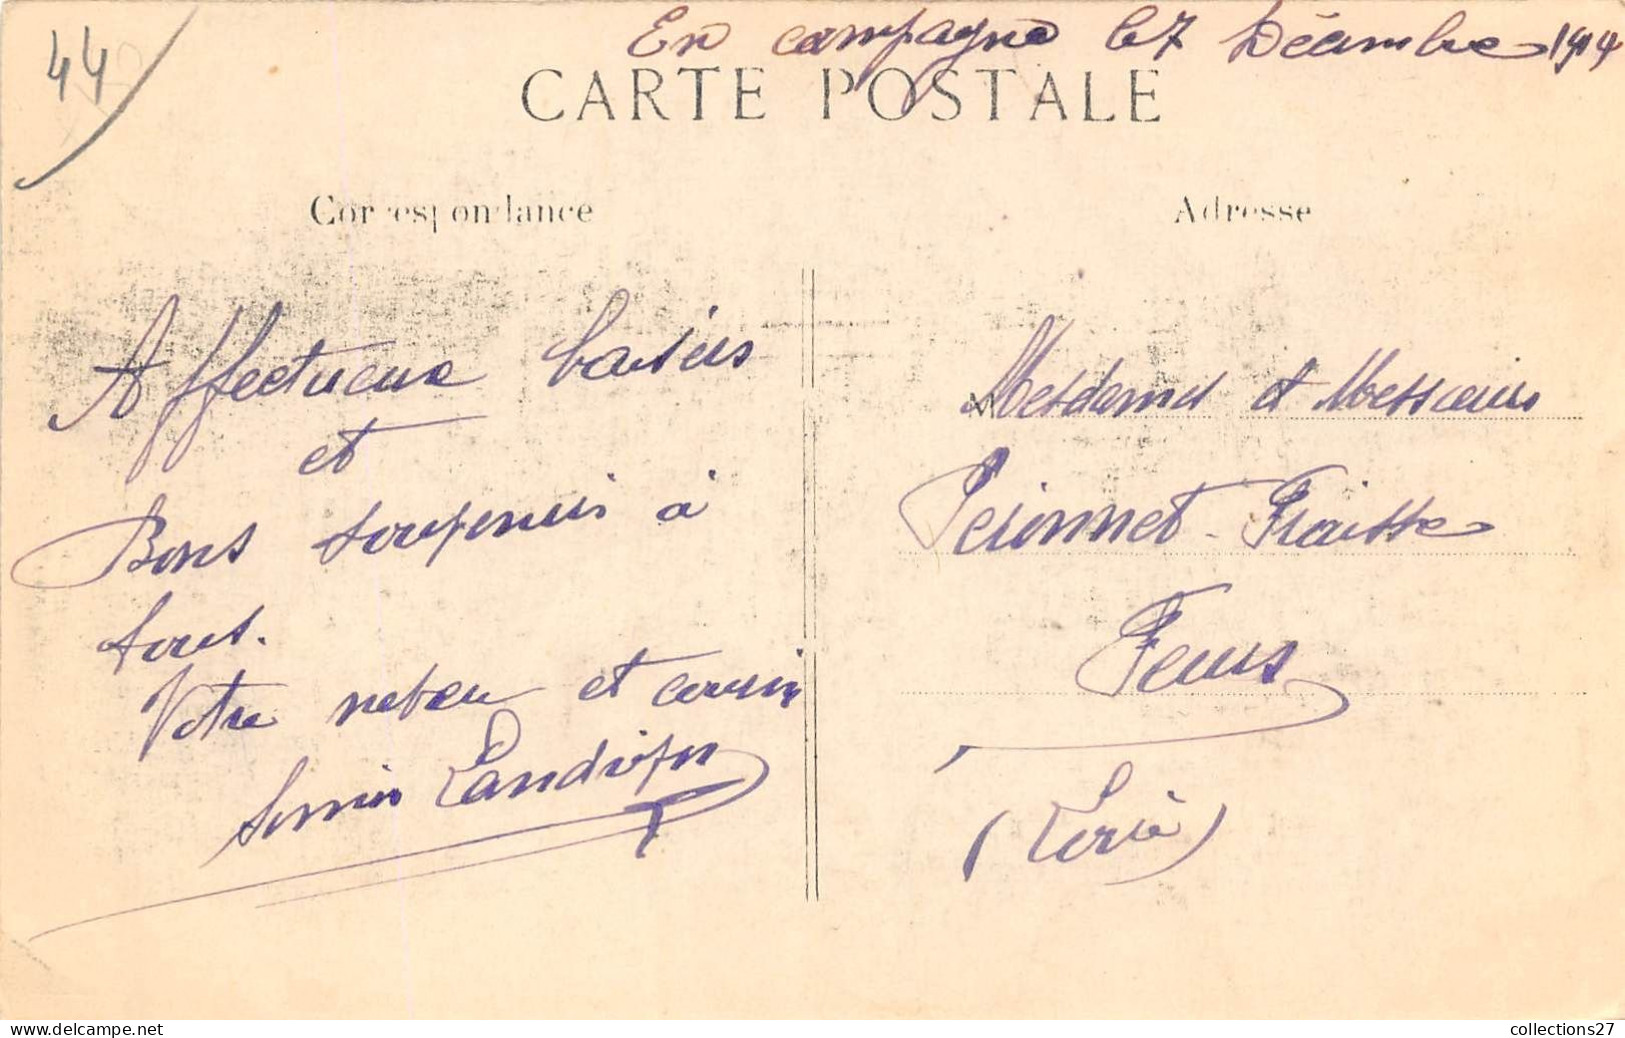 44
En campagne le 7 Décembre 1914
CARTE POSTALE
Correspondance
Adresse
Affectueux baisers
et
Bons souvenirs à
tous.
Votre neveu et cousin
Mesdames et Messieurs
Peronnet-Fraisse
Feurs
(Loire)
collections27